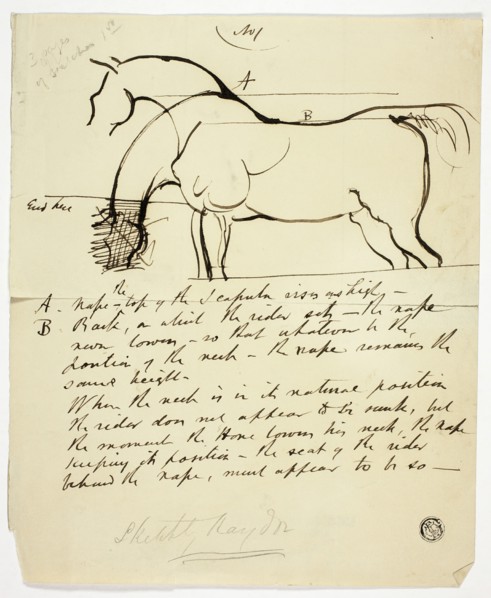 No 1
3 pages
of sketches 1st
A
B
End here
A. nape - the top of the Scapula rises as high -
B. Back, on which the rider sits - the nape
never lowers - so that whatever be the
position of the neck - the nape remains the
same height -
When the neck is in its natural position
the rider does not appear to be sunk, but
the moment the Horse lowers his neck, the nape
keeping its position - the seat of the rider
behind the nape, must appear to be so -
Sketch by Haydon